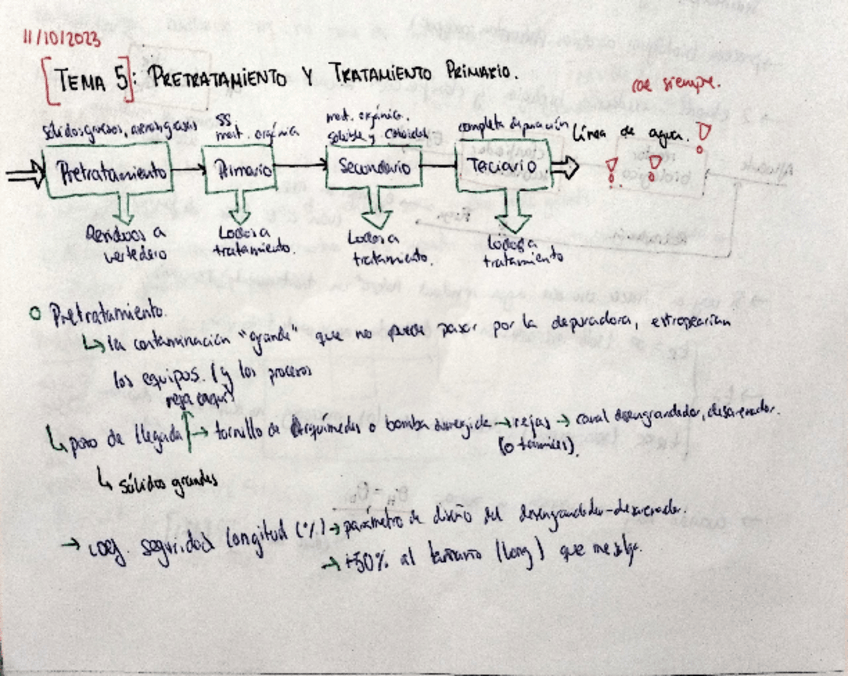 11/10/2023
[TEMA 5]: PRETRATAMIENTO Y TRATAMIENTO PRIMARIO.
cae siempre.
sólidos gruesos, arenas, grasas
SS,
mat. orgánica
mat. orgánica.
soluble y coloidal
completa depuración
Línea de agua.
! ! !
Pretratamiento
Primario
Secundario
Terciario
Residuos a
vertedero
Lodos a
tratamiento.
Lodos a
tratamiento.
Lodos a
tratamiento
Pretratamiento.
↳ la contaminación "grande" que no puede pasar por la depuradora, estropearían
los equipos. (y los procesos
reja aquí
↳ pozo de llegada → tornillo de Arquímedes o bomba sumergida → rejas → canal desengrasador, desarenador.
(o tamices)
↳ sólidos grandes
→ coef. seguridad longitud (%) → parámetro de diseño del desengrasador-desarenador.
→ +50% al tamaño (long) que me salga.